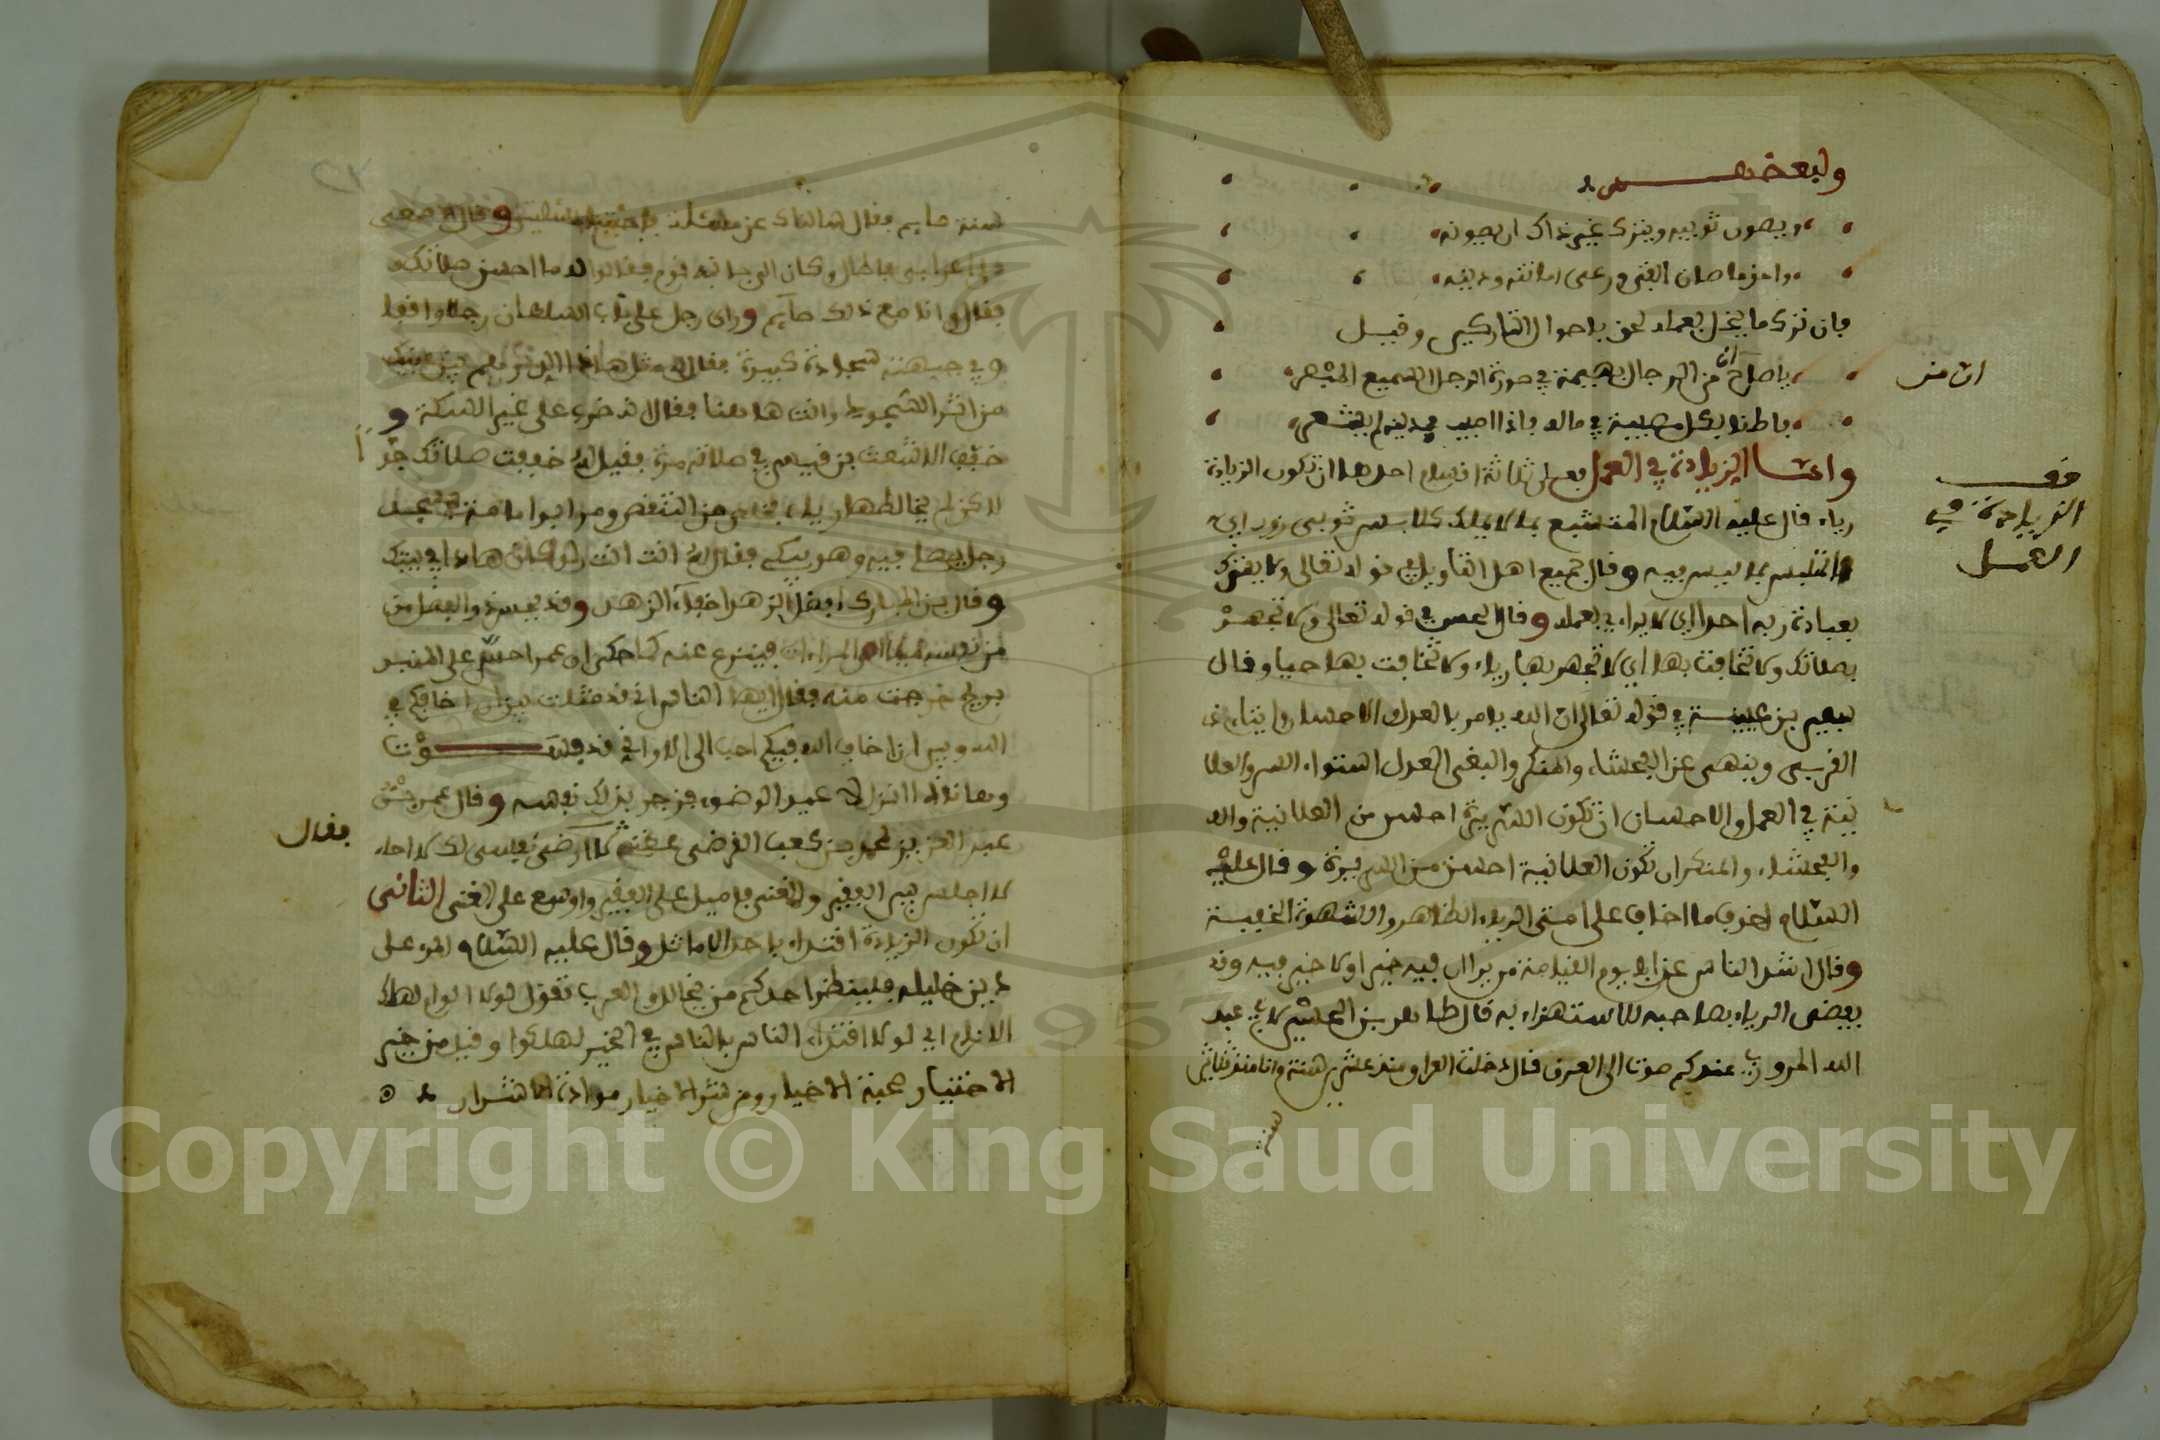 ولبعضهم
ويصون ثوبيه ويترك غير ذاك ان يصونه
واحق ما صان الفتى ورعى امانته ودينه
فان ترك ما يخل بعمله لحق باحوال التاركين وقيل
يا صاح ان من الرجال بهيمة في صورة الرجل السميع المبصر
ان من
فطن بكل مصيبة في ماله فاذا اصيب بدينه لم يشعر
واما الزيادة في العمل فعلى ثلاثة اقسام احدها ان تكون الزيادة
قف
الزيادة في
العمل
رياء قال عليه السلام المتشبع بما لا يملك كلابس ثوبي زور اي
المتلبس بما ليس فيه وقال جميع اهل التاويل في قوله تعالى ولا يشرك
بعبادة ربه احدا اي لا يراءي بعمله وقال الحسن في قوله تعالى ولا تجهر
بصلاتك ولا تخافت بها اي لا تجهر بها رياء ولا تخافت بها حيا وقال
سفين بن عيينة في قوله تعالى ان الله يامر بالعدل والاحسان وايتاء ذي
القربى وينهى عن الفحشاء والمنكر والبغي العدل استواء السر والعلا
نية في العمل والاحسان ان تكون السريرة احسن من العلانية والله
والفحشاء والمنكر ان تكون العلانية احسن من السريرة وقال عليه
السلام اخوف ما اخاف على امتي الرياء الظاهر والشهوة الخفية
وقال اشد الناس عذابا يوم القيامة من يرا ان فيه خير اولا خير فيه وقد
يفضي الرياء بصاحبه للاستهزاء به قال طاهر بن الحسين لابي عبد
الله المروزي عندكم صوت الى العرق قال دخلت العراق منذ عشرين سنة وانا منذ ثلاثين
سنة
سنة صايم فقال سالناك عن مسئلة فاجبت وقال الاصمعي
صلى اعرابي فاطال وكان الى جانبه قوم فقالوا له ما احسن صلاتك
فقال وانا مع ذلك صايم وراى رجل على باب السلطان رجلا واقفا
وفي جبهته سجادة كبيرة فقال له مثل هذا الدرهم بين عينيك
من اثر السجود وانت هاهنا فقال انه ضرب على غير السكة و
خفف الاشعث بن قيس في صلاته مرة فقيل له خففت صلاتك جدا
لاكن لم يخالطها رياء فتخلص من التنقص ومر ابو امامة في مسجد
رجل يصلي فيه وهو يبكي فقال له انت انت لو كان هذا في بيتك
وقال بن المبارك افضل الزهد اخفاء الزهد وقد يحس ذو الفضل من
من نفسه ميلا الى المراءات فينزع عنه كما حكي ان عمر احس على المنبر
بريح خرجت منه فقال ايها الناس اني قد مثلت بين ان اخافكم في
الله وبين ان اخاف الله فيكم احب الي الا واني قد فسوت
وها انا ذا انزل لاعيد الوضوء فزجر بذلك نفسه وقال عمر بن
عبد العزيز لمحمد بن كعب القرضي عظني لا ارضى نفسي لك لاحا
فقال
لا اجلس بين الفقير والغني فاميل على الفقير واوسع على الغني الثاني
ان تكون الزيادة اقتداء باحد الاماثل وقال عليه السلام المرء على
دين خليله فلينظر احدكم من يخالل والعرب تقول لولا الوام لهلك
الانام اي لولا اقتداء الناس بالناس في الخير لهلكوا وقيل من خير
الاختيار صحبة الاخيار ومن شر الاختيار موادة الاشرار